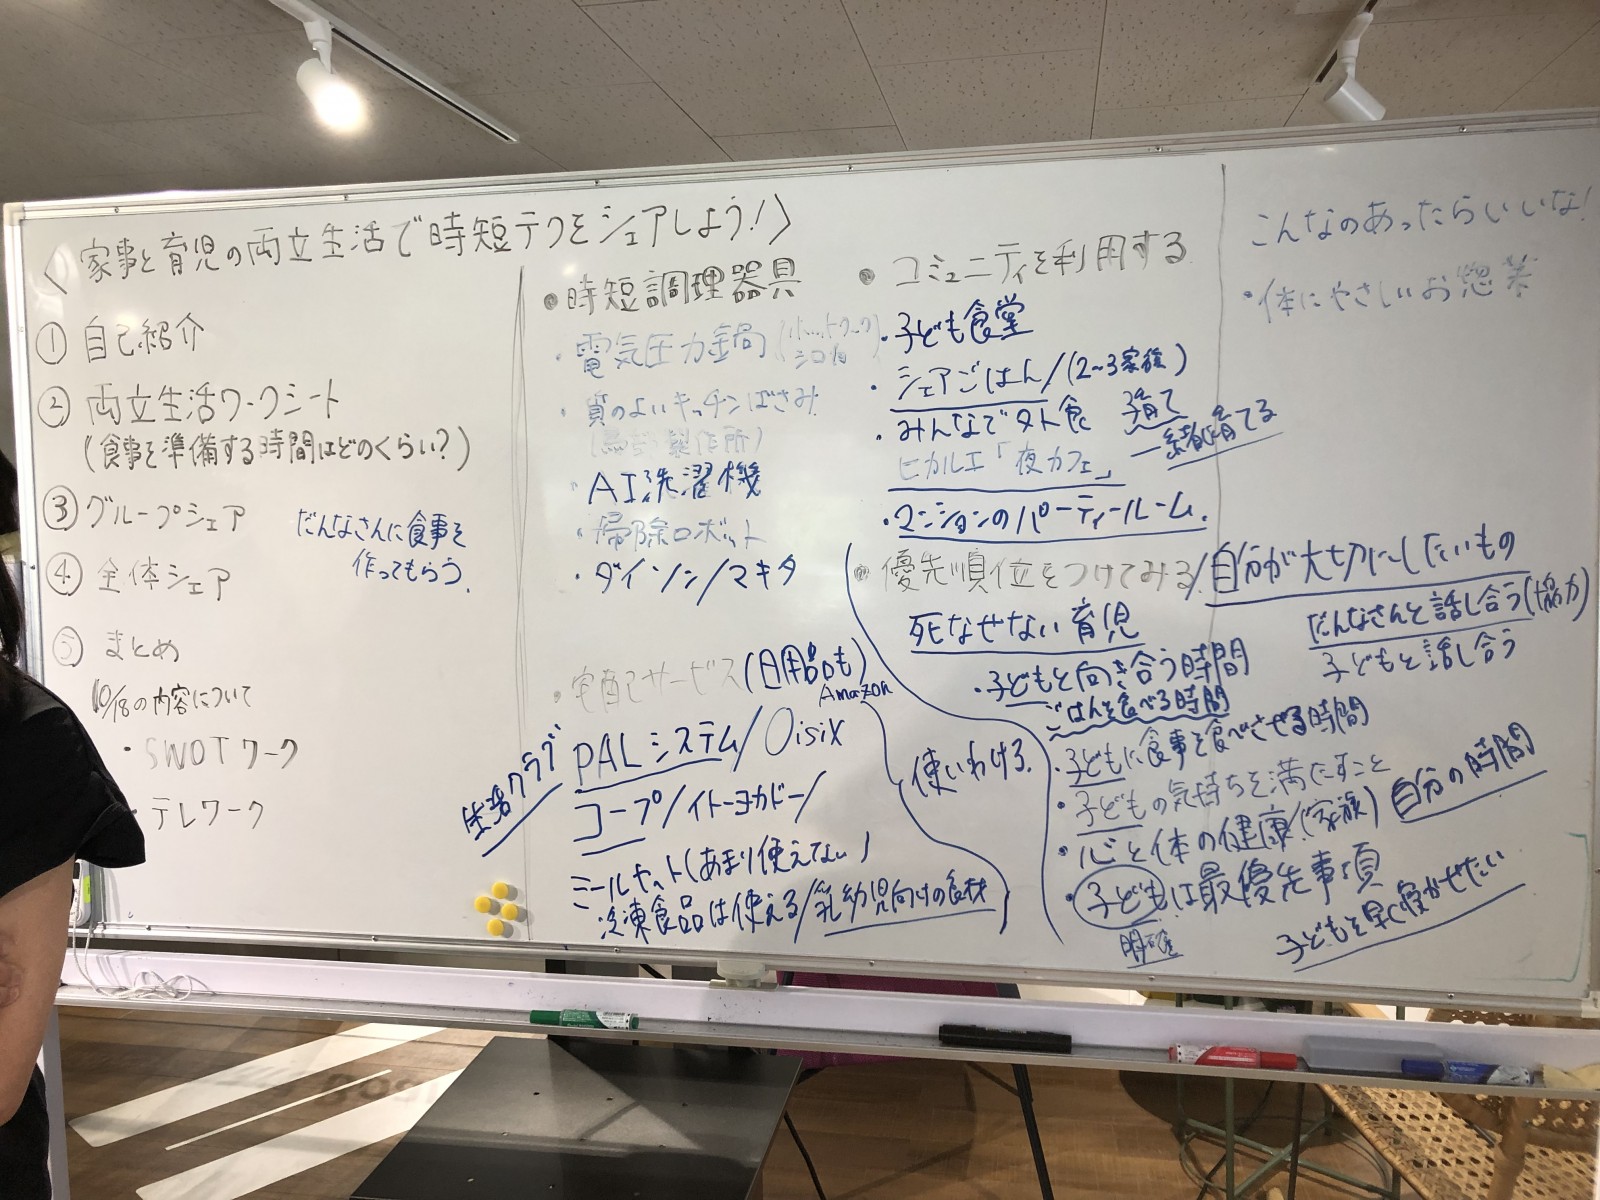 〈家事と育児の両立生活で時短テクをシェアしよう!〉
① 自己紹介
② 両立生活ワークシート
(食事を準備する時間はどのくらい?)
③ グループシェア
だんなさんに食事を
作ってもらう.
④ 全体シェア
⑤ まとめ
10/18の内容について
・SWOTワーク
・テレワーク
●時短調理器具
・電気圧力鍋(ホットクック
シロカ)
・質のよいキッチンばさみ
製作所)
・AI洗濯機
・掃除ロボット
・ダイソン/マキタ
・宅配サービス(日用品も)
Amazon
生活クラブ
PALシステム/Oisix
コープ/イトーヨカドー/
ミールキット(あまり使えない)
冷凍食品は使える/乳幼児向けの食材
使いわける.
●コミュニティを利用する
・子ども食堂
・シェアごはん/(2〜3家族)
・みんなで夕食
子育て
一緒に育てる
ヒカリエ「夜カフェ」
・マンションのパーティールーム.
●優先順位をつけてみる/自分が大切にしたいもの
死なせない育児
だんなさんと話し合う(協力)
子どもと話し合う
・子どもと向き合う時間
ごはんを食べる時間
・子どもに食事を食べさせる時間
・子どもの気持ちを満たすこと
・心と体の健康(家族)
自分の時間
・子どもは最優先事項
明確
子どもを早く寝かせたい
こんなのあったらいいな!
・体にやさしいお惣菜